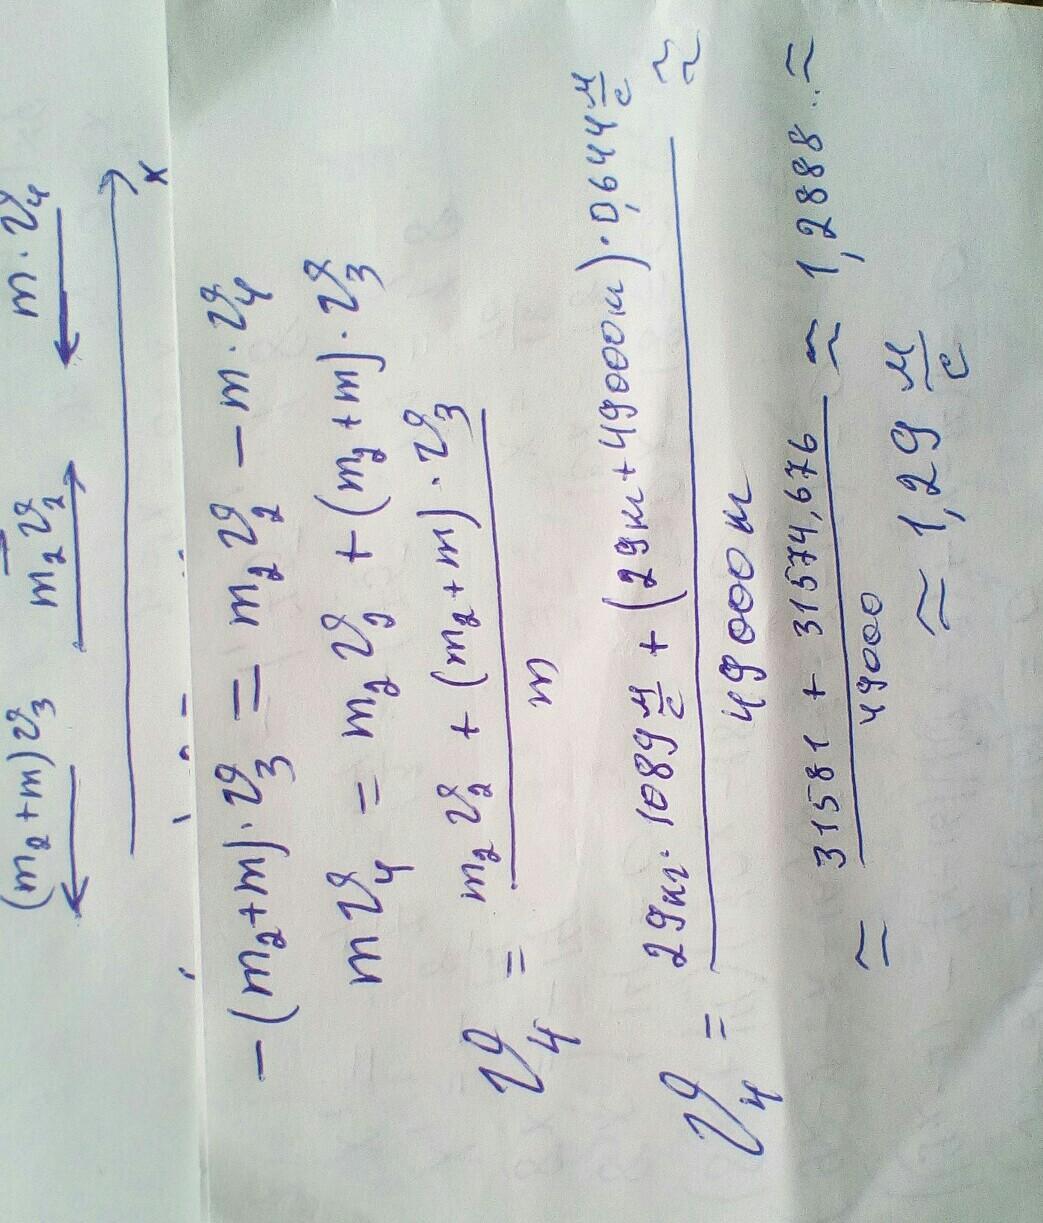 (m₂+m)𝓋₃ m₂𝓋₂ m·𝓋₄
x
−(m₂+m)·𝓋₃ = m₂𝓋₂ − m·𝓋₄
m𝓋₄ = m₂𝓋₂ + (m₂+m)·𝓋₃
𝓋₄ = (m₂𝓋₂ + (m₂+m)·𝓋₃) / m
𝓋₄ = (29кг·1089 м/с + (29кг+49000кг)·0,644 м/с) / 49000кг ≈
≈ (31581 + 31574,676) / 49000 ≈ 1,2888.. ≈
≈ 1,29 м/с